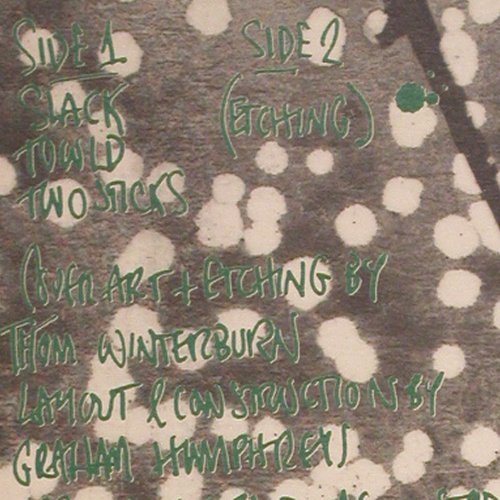 SIDE 1
SLACK
TOWLD
TWO STICKS
SIDE 2
(ETCHING)
COVER ART + ETCHING BY
THOM WINTERBURN
LAYOUT & CONSTRUCTION BY
GRAHAM HUMPHREYS